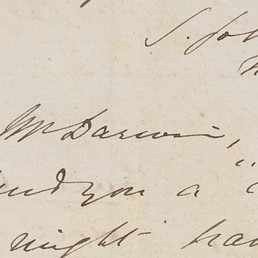 S. Jo
Mr Darwin,
send you a "
might hav